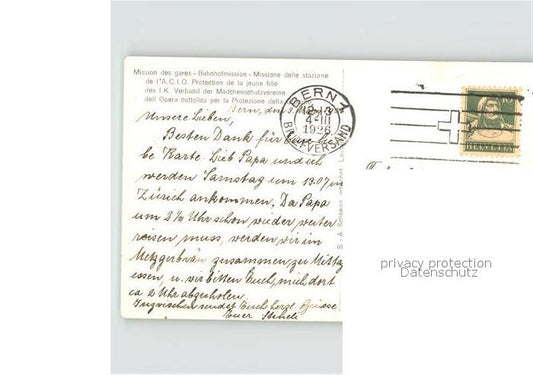 Mission des gares - Bahnhofmission - Missione delle stazione
de l'A.C.I.O. Protection de la jeune fille
des I.K. Verband der Mädchenschutzvereine
dell Opera cattolica per la Protezione della
Bern, den 3.
Unsere Lieben,
Besten Dank für
be Karte. Lieb Papa und ich
werden Samstag um 13.07 in
Zürich ankommen. Da Papa
um 2½ Uhr schon wieder weiter
reisen muss, werden wir im
Metzgerbräu zusammen zu Mittag
essen, u. wir bitten Euch, mich dort
ca 2 Uhr abzuholen.
Inzwischen sendet Euch herzl. Grüsse
Euer
BERN 1
4-III
1926
BRIEFVERSAND
10
HELVETIA
privacy protection
Datenschutz